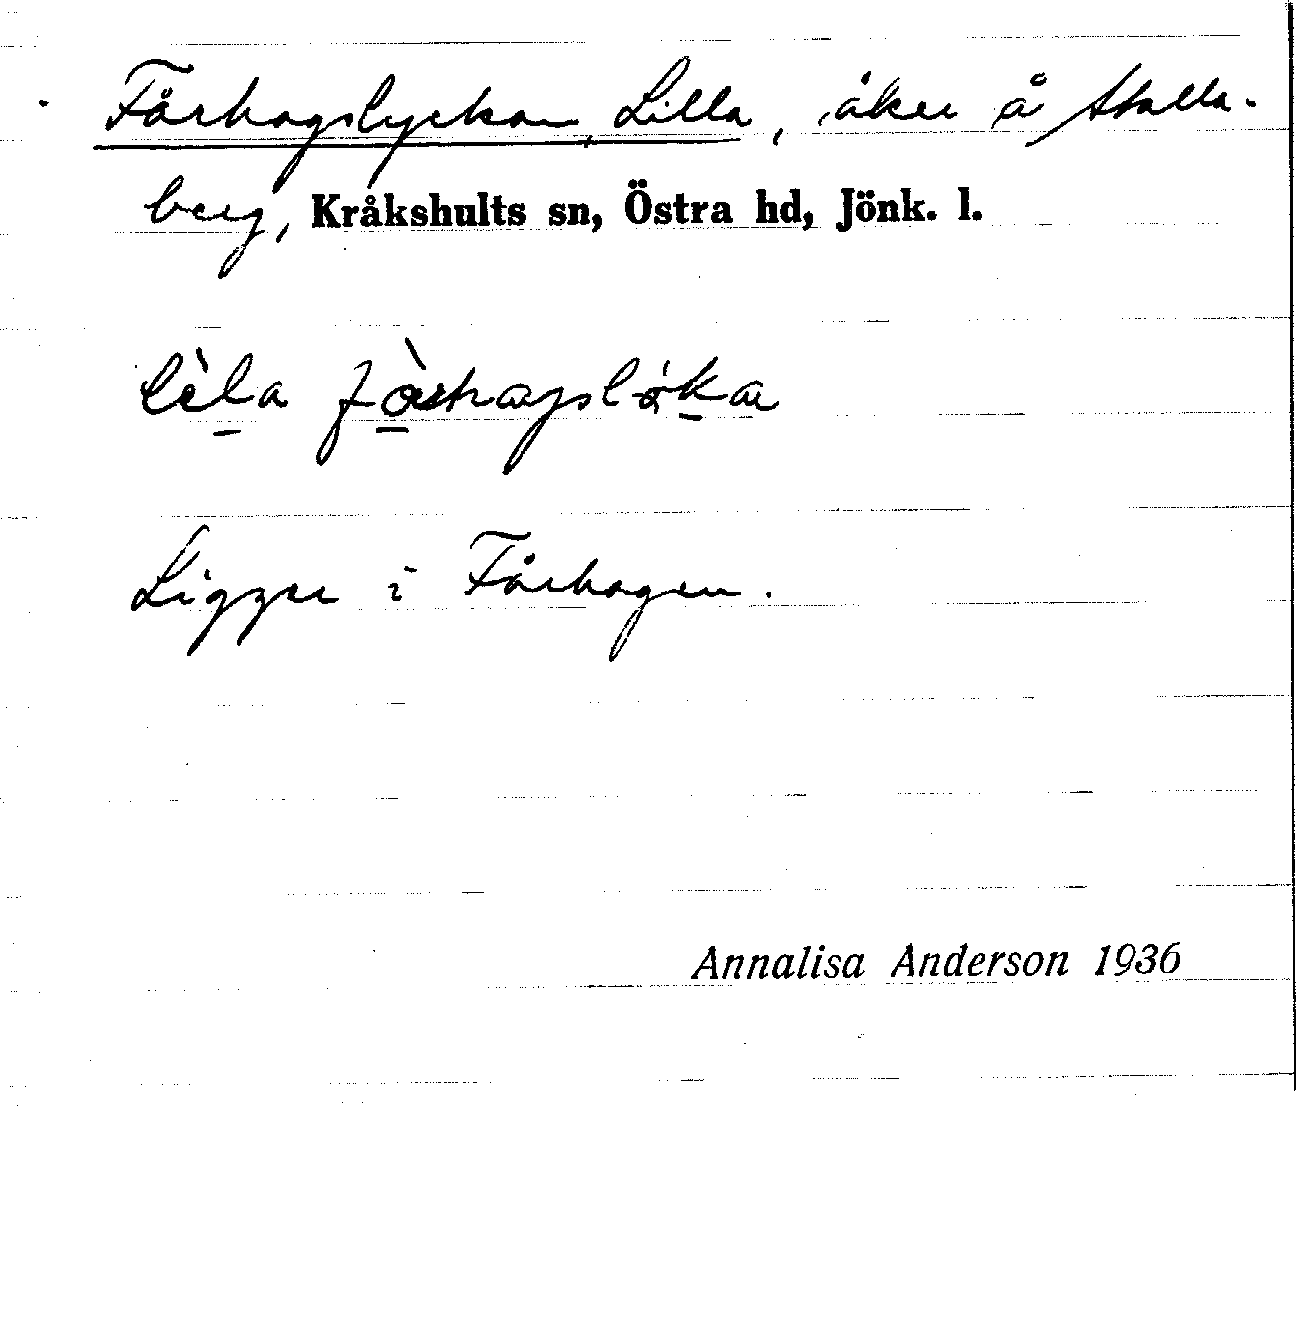 Fårhagslyckan, Lilla, åker å Skalla-
berg, Kråkshults sn, Östra hd, Jönk. l.
lìla fòrhagsløka
Ligger i Fårhagen.
Annalisa Anderson 1936